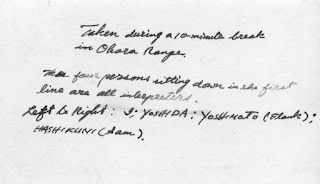 Taken during a 10-minute break
in Ohara Range.
The four persons sitting down in the first
line are all interpreters.
Left to Right: I; YOSHIDA: YOSHIMOTO (Frank);
HASHIKUNI (Sam).